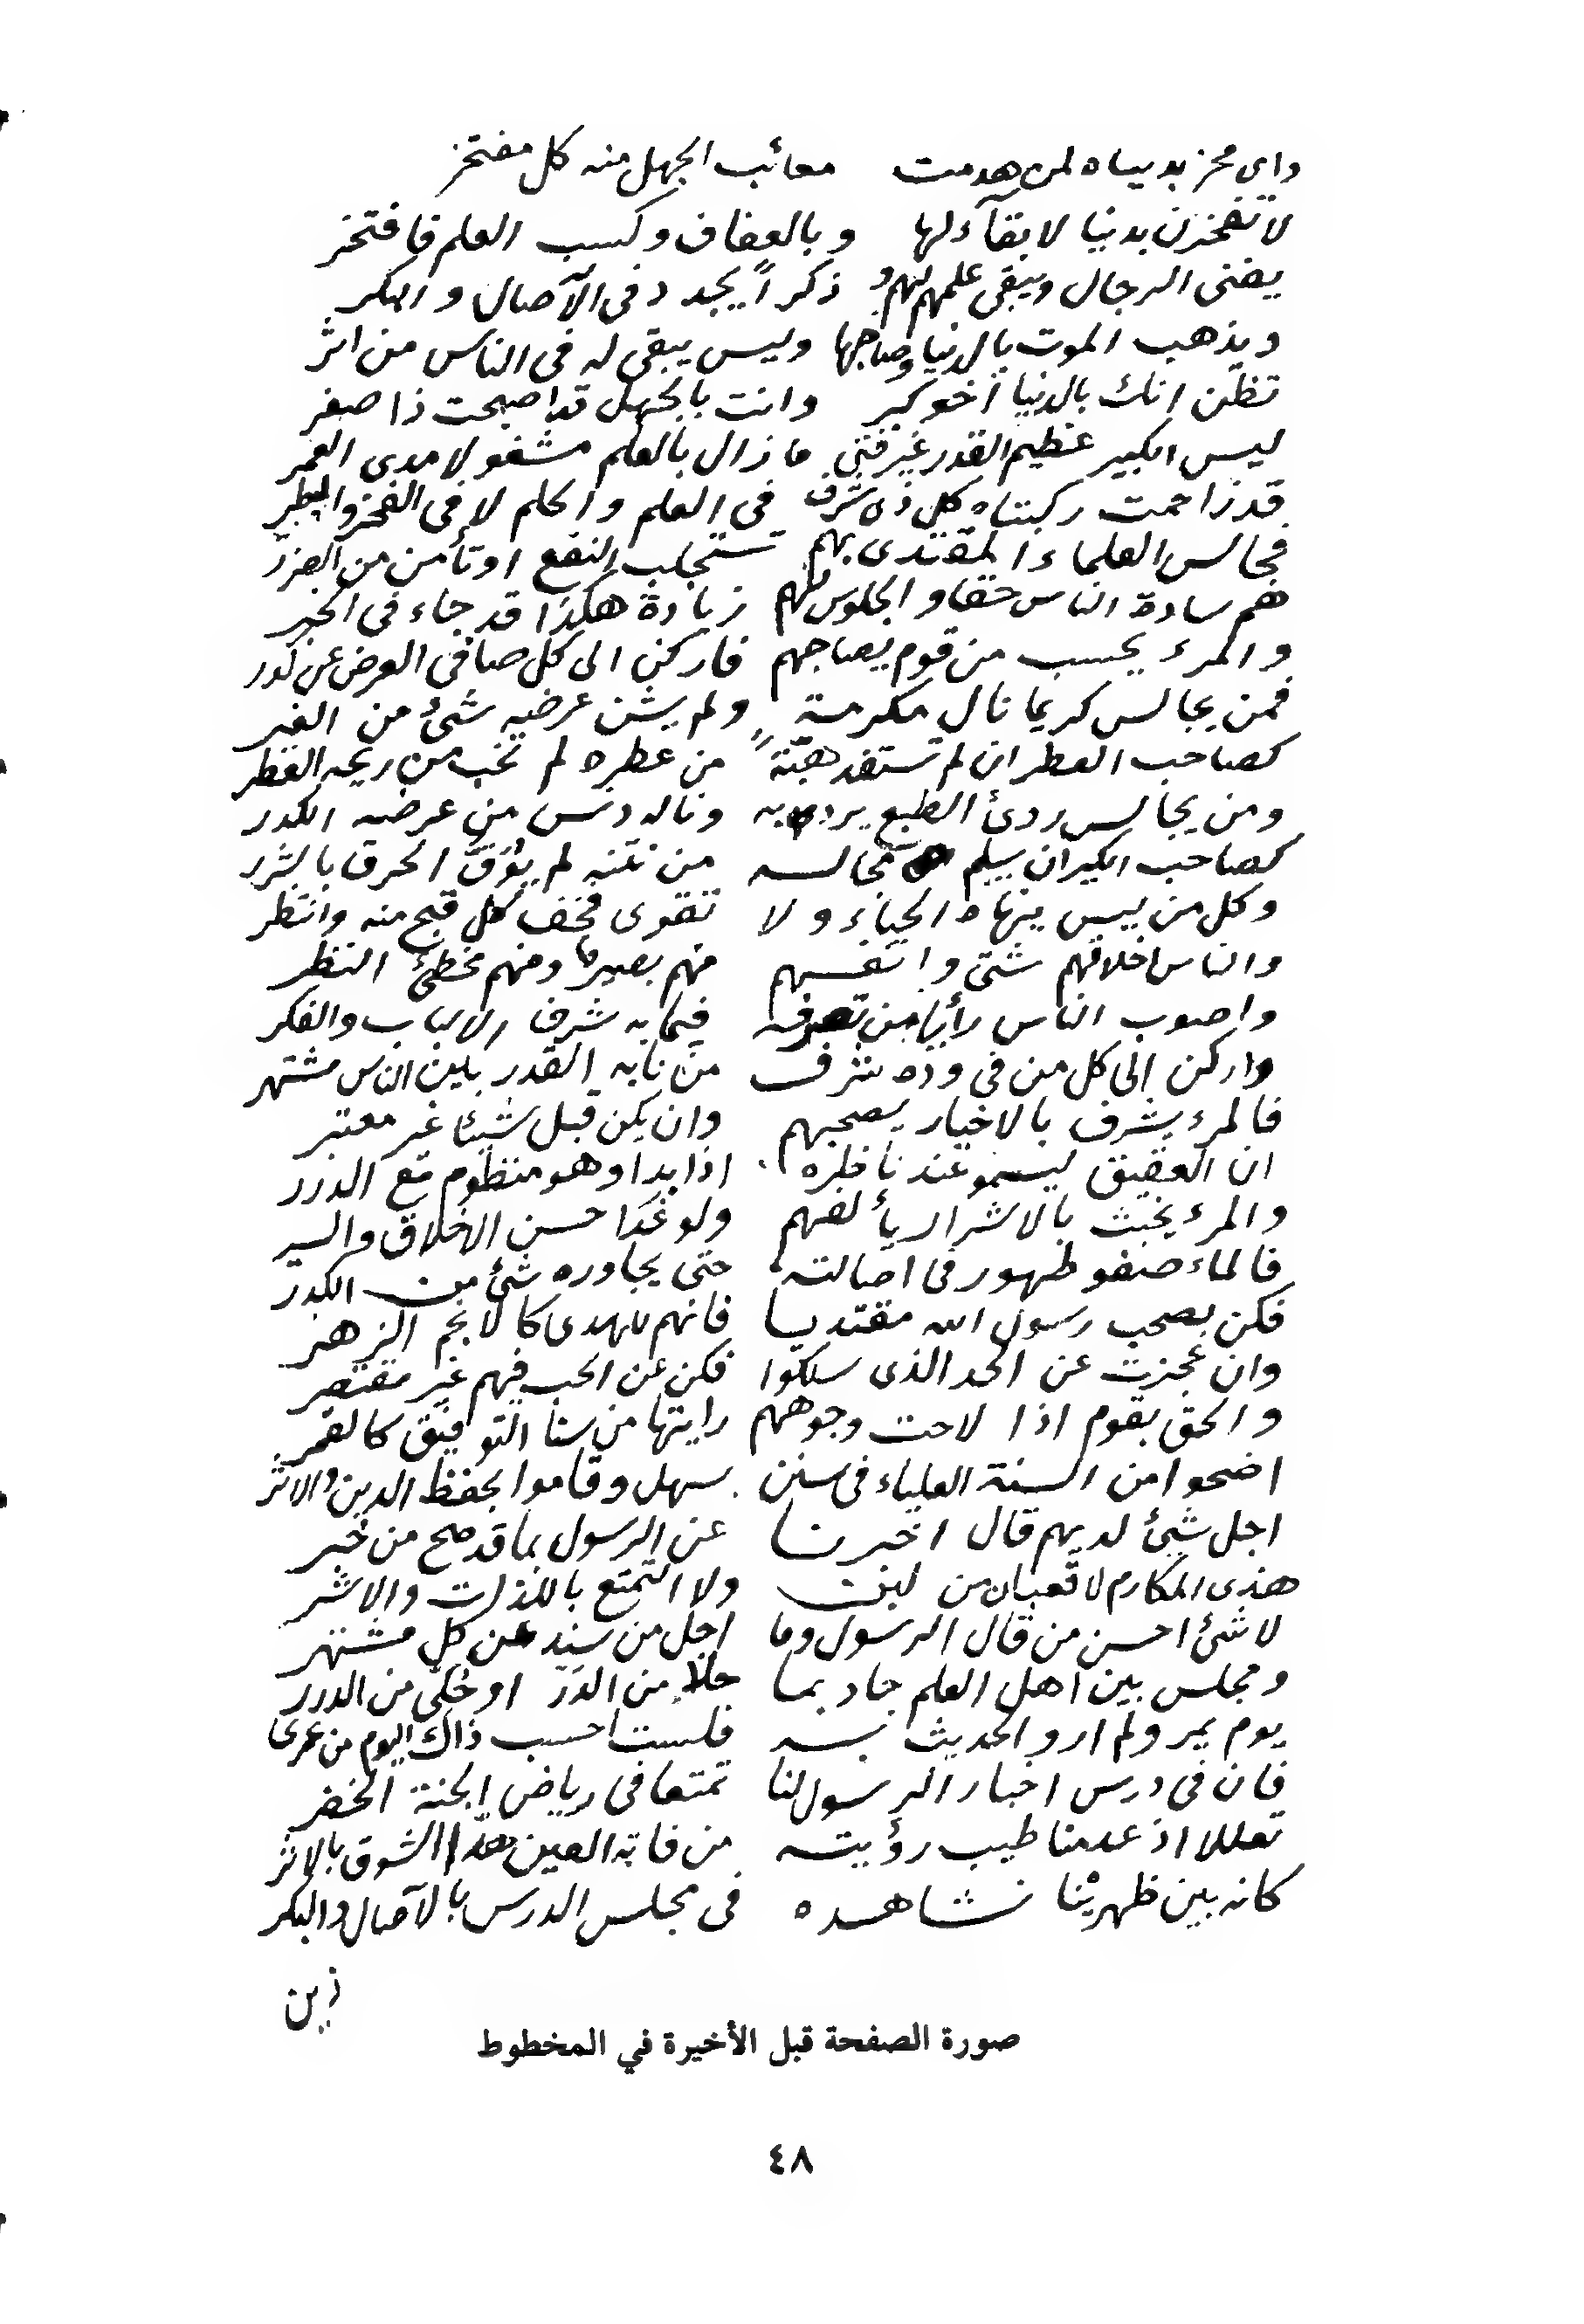 واى فخز بدنياه لمن هدمت معائب الجهل منه كل مفتخز
لا تفخزن بدنيا لا بقآء لها وبالعفاف وكسب العلم فافتخز
يفنى الرجال ويبقى علمهم لهم ذكراً يجدد فى الآصال والبكر
ويذهب الموت بالدنيا وصاحبها وليس يبقى له فى الناس من اثر
تظن انك بالدنيا أخو كبر وانت بالجهل قد اصبحت ذا صغر
ليس الكبير عظيم القدر غير فتى ما زال بالعلم مشغولا مدى العمر
قد زاحمت ركبتاه كل ذى شرف فى العلم والحلم لا فى الفخر والبطر
فجالس العلماء المقتدى بهم تستجلب النفع او تأمن من الضرر
هم سادة الناس حقا والجلوس لهم زيادة هكذا قد جاء فى الخبر
والمرء يحسب من قوم يصاحبهم فاركن الى كل صافى العرض عن كدر
فمن يجالس كريما نال مكرمة ولم يشن عرضه شئ من الغير
كصاحب العطر ان لم تستفد هبة من عطره لم تخب من ريحه العطر
ومن يجالس ردئ الطبع يرد به وناله دنس من عرضه الكدر
كصاحب الكير ان يسلم مجالسه من نتنه لم يُوَقَّ الحرق بالشرر
وكل من ليس ينهاه الحياء ولا تقوى فخف كل قبح منه وانتظر
والناس اخلاقهم شتى وانفسهم منهم بصير ومنهم مخطئ النظر
واصوب الناس رأيا من تصرفه فيما به شرف الالباب والفكر
واركن الى كل من فى وده شرف من نابه القدر بين الناس مشتهر
فالمرء يشرف بالاخيار يصحبهم وان يكن قبل شيئا غير معتبر
ان العقيق ليسمو عند ناظره اذا بدا وهو منظوم مع الدرر
والمرء يخبث بالاشرار يألفهم ولو غدا حسن الاخلاق والسير
فالماء صفو طهور فى اصالته حتى يجاوره شئ من الكدر
فكن بصحب رسول الله مقتديا فانهم للهدى كالانجم الزهر
وان عجزت عن الحد الذى سلكوا فكن عن الحب فيهم غير مقتصر
والحق بقوم اذا لاحت وجوههم رايتها من سنا التوفيق كالقمر
اضحوا من السنة العلياء فى سنن سهل وقاموا بحفظ الدين والاثر
اجل شئ لديهم قال اخبرنا عن الرسول بما قد صح من خبر
هذى المكارم لا قعبان من لبن ولا التمتع باللذات والاشر
لا شئ احسن من قال الرسول وما اجل من سند عن كل مشتهر
ومجلس بين اهل العلم جاد بما حلا من الدر او حلى من الدرر
يوم يمر ولم ارو الحديث به فلست احسب ذاك اليوم من عمرى
فان فى درس اخبار الرسول لنا تمتعا فى رياض الجنة الخضر
تعللا اذ عدمنا طيب رؤيته من فاته العين هدّ الشوق بالاثر
كانه بين ظهرينا نشاهده فى مجلس الدرس بالآصال والبكر
زين
صورة الصفحة قبل الأخيرة في المخطوط
٤٨